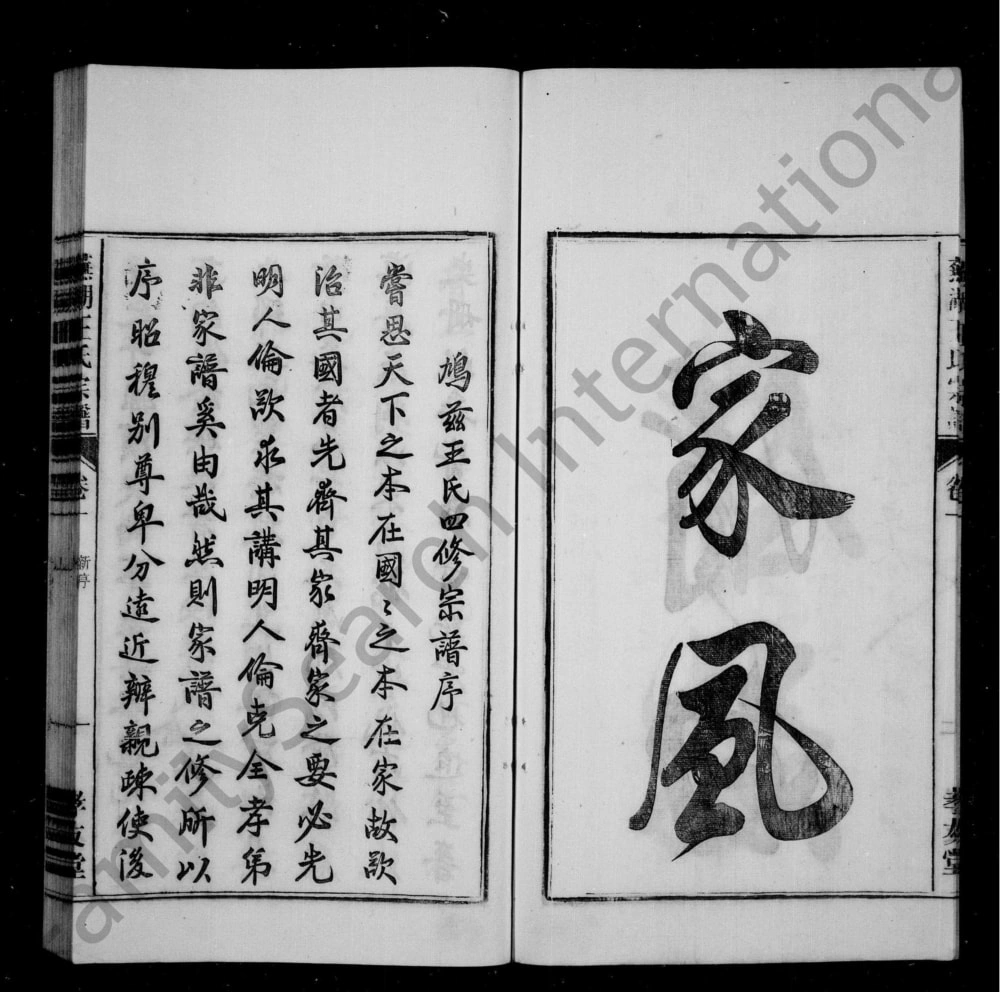 家風
蕪湖王氏宗譜
卷一
二
孝友堂
鳩兹王氏四修宗譜序
嘗思天下之本在國〻之本在家故欲
治其國者先齊其家齊家之要必先
明人倫欲求其講明人倫克全孝弟
非家譜奚由哉然則家譜之修所以
序昭穆别尊卑分遠近辨親疎使後
蕪湖王氏宗譜
卷一
新序
一
孝友堂
FamilySearch International